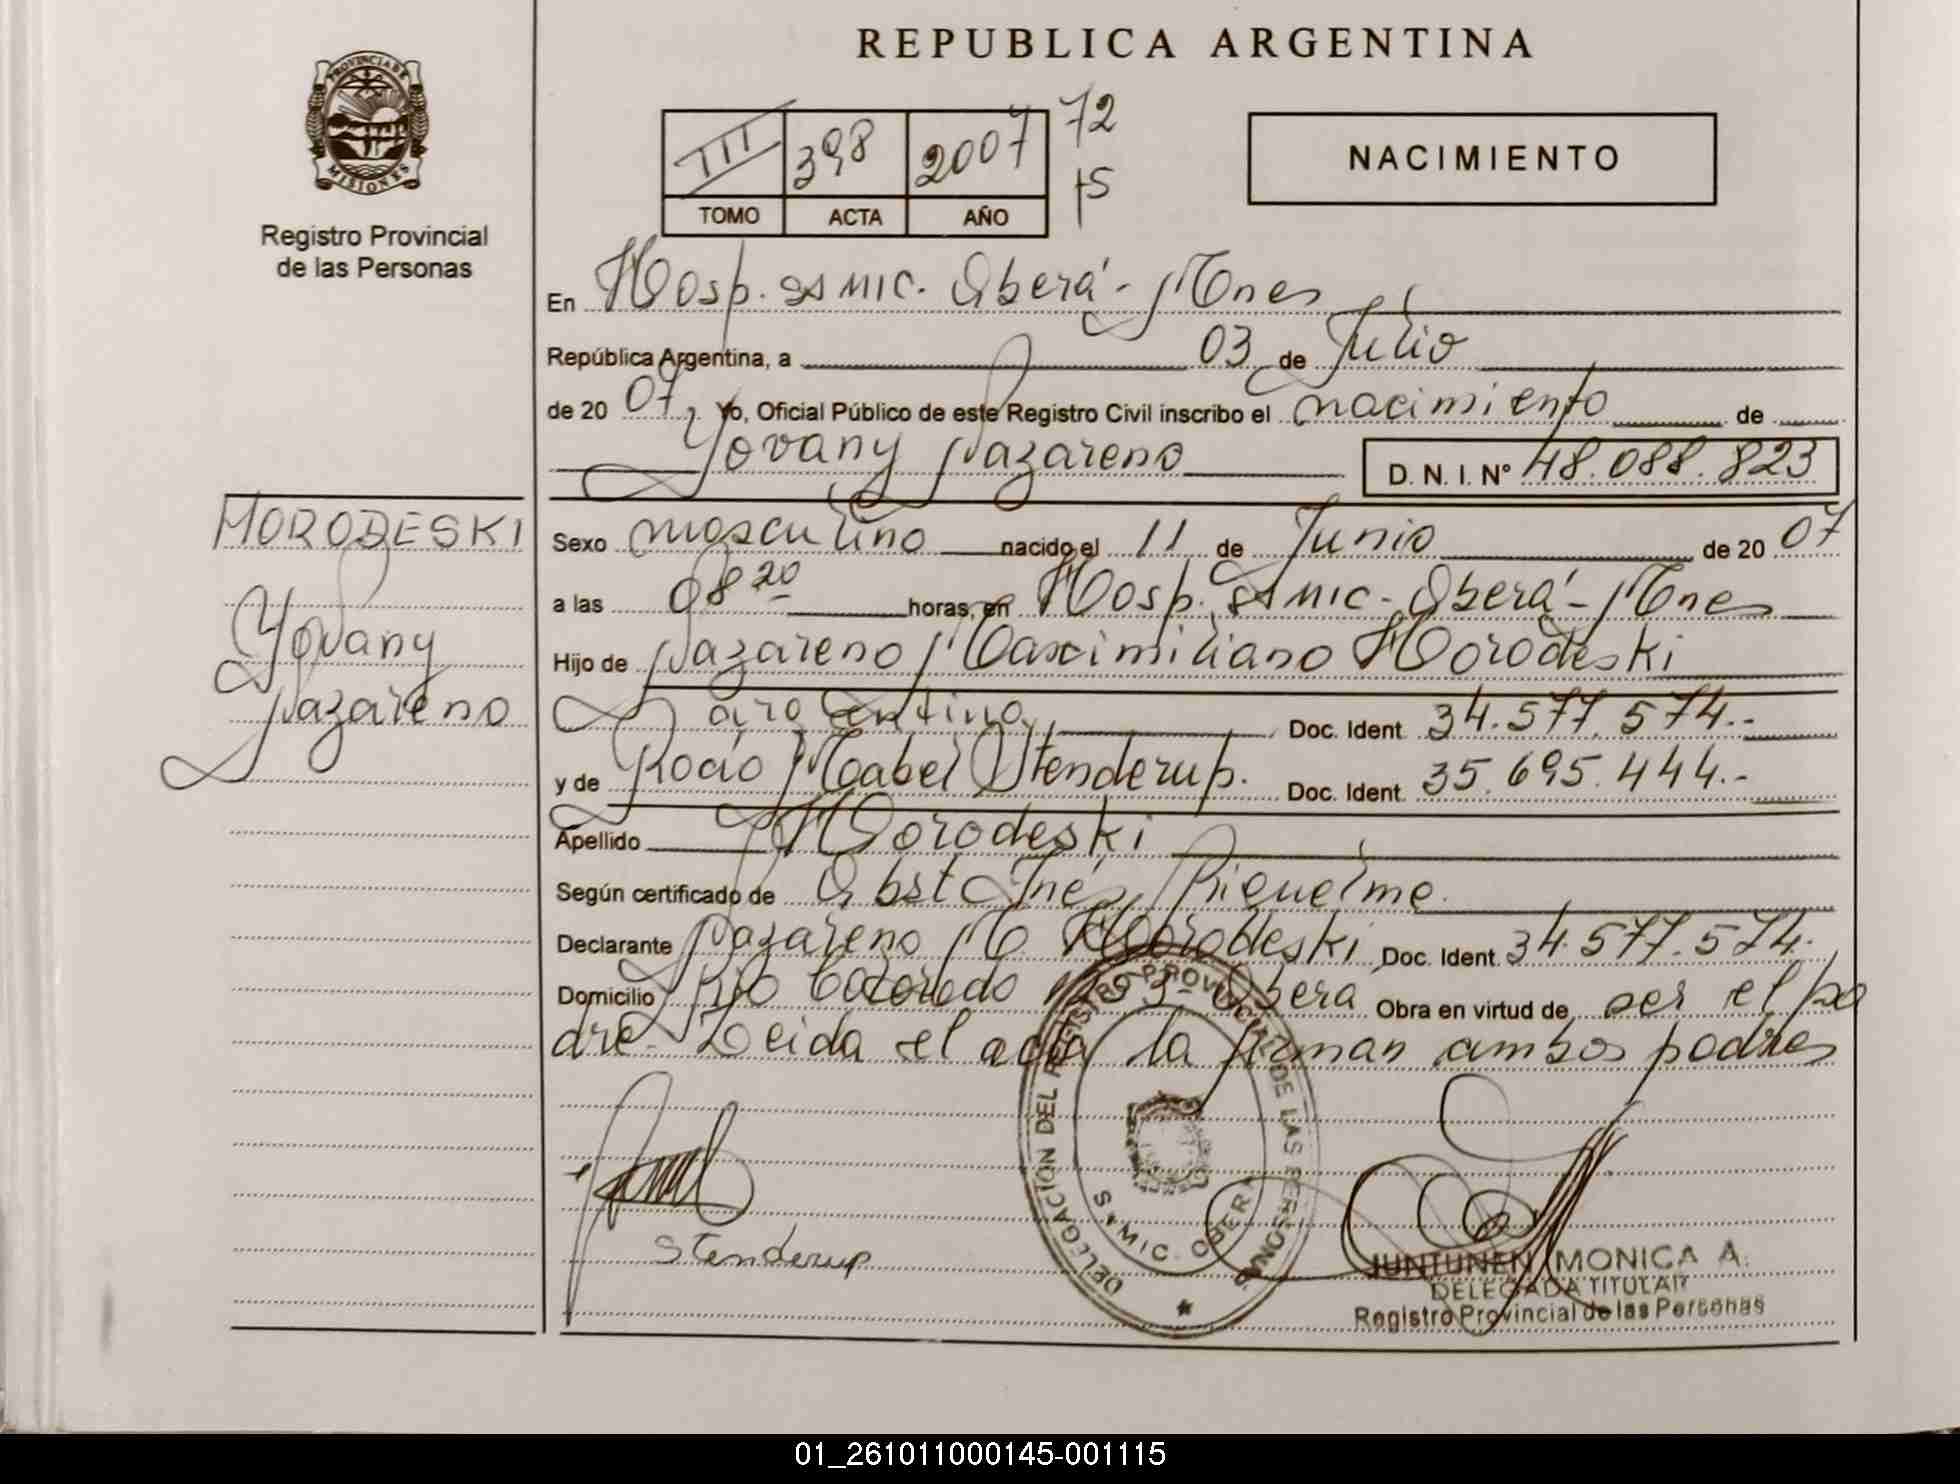 REPUBLICA ARGENTINA
PROVINCIA DE
MISIONES
Registro Provincial
de las Personas
III 398 2007 72
15
TOMO ACTA AÑO
NACIMIENTO
En Hosp. SAMIC. Oberá - Mnes
República Argentina, a 03 de Julio
de 20 07, Yo, Oficial Público de este Registro Civil inscribo el nacimiento de
Yovany Nazareno D. N. I. N° 48.088.823
HORODESKI
Yovany
Nazareno
Sexo masculino nacido el 11 de Junio de 20 07
a las 08 20 horas, en Hosp. SAMIC - Oberá - Mnes
Hijo de Nazareno Maximiliano Horodeski
argentino Doc. Ident. 34.577.574.-
y de Rocío Mabel Stenderup. Doc. Ident. 35.695.444.-
Apellido Horodeski
Según certificado de Obst Inés Riquelme.
Declarante Nazareno M. Horodeski Doc. Ident. 34.577.574.
Domicilio Río Colorado Oberá Obra en virtud de ser el pa
dre. Leida el acta la firman ambos padres
Stenderup
DELEGACION DEL REGISTRO PROVINCIAL DE LAS PERSONAS
SAMIC. OBERA
JUNTUNEN MONICA A.
DELEGADA TITULAR
Registro Provincial de las Personas
01_261011000145-001115